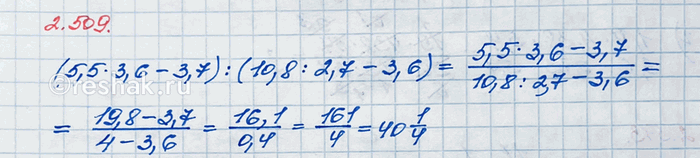 2.509.
(5,5·3,6-3,7):(10,8:2,7-3,6)= 5,5·3,6-3,7 / 10,8:2,7-3,6 =
= 19,8-3,7 / 4-3,6 = 16,1 / 0,4 = 161 / 4 = 40 1/4
©reshak.ru